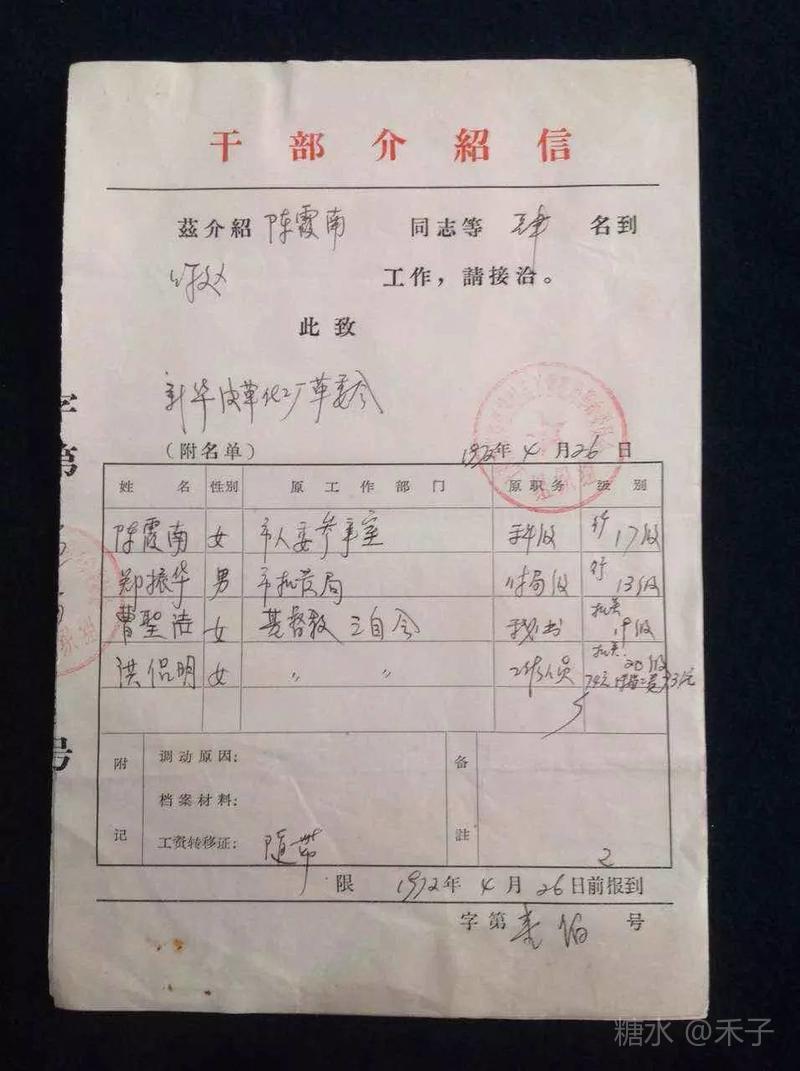 干部介紹信
茲介紹 陈霞南 同志等 肆 名到
你处 工作，請接洽。
此致
新华皮革化工厂革委会
(附名单) 1972年4月26日
姓名 性别 原工作部门 原职务 级别
陈霞南 女 市人委参事室 科级 行17级
郑振华 男 市 局 付局级 行13级
曹聖洁 女 基督教三自会 秘书 机关 级
洪侣明 女 〃 〃 工作人员 机关20级
74元
附记 调动原因: 备註
档案材料:
工资转移证: 随带
限 1972年4月26日前报到
字第 号
字第
号
糖水 @禾子